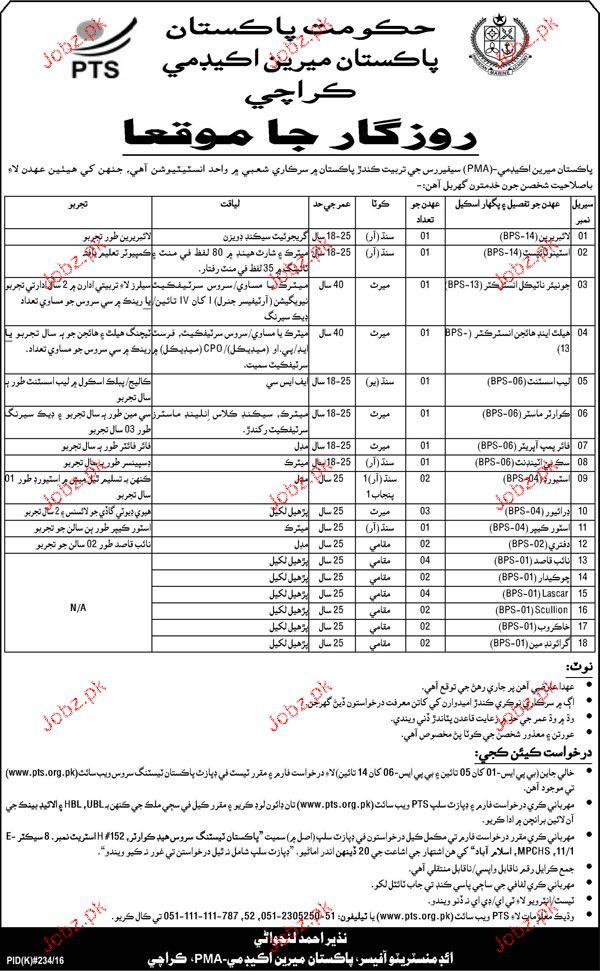 PTS
حڪومت پاڪستان
پاڪستان ميرين اڪيڊمي
ڪراچي
روزگار جا موقعا
پاڪستان ميرين اڪيڊمي-(PMA) سيفيررس جي تربيت ڪندڙ پاڪستان ۾ سرڪاري شعبي ۾ واحد انسٽيٽيوشن آهي، جنهن کي هيٺين عهدن لاءِ
باصلاحيت شخصن جون خدمتون گهربل آهن:-
سيريل نمبر | عهدن جو تفصيل ۽ پگهار اسڪيل | عهدن جو تعداد | ڪوٽا | عمر جي حد | لياقت | تجربو
01 | لائبريرين (BPS-14) | 01 | سنڌ (آر) | 18-25 سال | گريجوئيٽ سيڪنڊ ڊويزن | لائبريرين طور تجربو
02 | اسٽينوٽائپسٽ (BPS-14) | 01 | سنڌ (آر) | 18-25 سال | ميٽرڪ ۽ شارٽ هينڊ ۾ 80 لفظ في منٽ ۽ ٽائپنگ ۾ 35 لفظ في منٽ رفتار. | ڪمپيوٽر تعليم يافته
03 | جونيئر ناٽيڪل انسٽرڪٽر (BPS-13) | 01 | ميرٽ | 40 سال | ميٽرڪ يا مساوي/سروس سرٽيفڪيٽ نيويگيشن (آرٽيفسر جنرل) I کان IV تائين/ڊيڪ سيرنگ | سيلرز لاءِ تربيتي ادارن ۾ 2 سال ادارتي تجربو يا رينڪ ۾ سي سروس جو مساوي تعداد
04 | هيلٿ اينڊ هائجن انسٽرڪٽر (BPS-13) | 01 | ميرٽ | 40 سال | ميٽرڪ يا مساوي/سروس سرٽيفڪيٽ، فرسٽ ايڊ/پي.او (ميڊيڪل)/CPO (ميڊيڪل) سرٽيفڪيٽ سميت. | ٽيچنگ هيلٿ ۽ هائجن جو ٻه سال تجربو يا رينڪ ۾ سي سروس جو مساوي تعداد.
05 | ليب اسسٽنٽ (BPS-06) | 01 | سنڌ (يو) | 18-25 سال | ايف ايس سي | ڪاليج/پبلڪ اسڪول ۾ ليب اسسٽنٽ طور ٻه سال تجربو
06 | ڪوارٽر ماسٽر (BPS-06) | 01 | ميرٽ | 18-25 سال | ميٽرڪ، سيڪنڊ ڪلاس انلينڊ ماسٽرز سرٽيفڪيٽ رکندڙ. | سي مين طور ٻه سال تجربو ۽ ڊيڪ سيرنگ طور 03 سال تجربو
07 | فائر پمپ آپريٽر (BPS-06) | 01 | ميرٽ | 18-25 سال | مڊل | فائر فائٽر طور تجربو
08 | سڪ بي اٽينڊنٽ (BPS-06) | 01 | سنڌ (آر) | 18-25 سال | ميٽرڪ | ڊسپينسر طور ٻه سال تجربو
09 | اسٽيورڊ (BPS-04) | 02 | سنڌ (آر) 1 پنجاب 1 | 25 سال | مڊل | ڪنهن به تسليم ٿيل ميس ۾ اسٽيورڊ طور 01 سال تجربو
10 | ڊرائيور (BPS-04) | 03 | ميرٽ | 25 سال | پڙهيل لکيل | هيوي ڊيوٽي گاڏي جو لائسنس ۽ 2 سال تجربو
11 | اسٽور ڪيپر (BPS-04) | 01 | سنڌ (آر) | 25 سال | ميٽرڪ | اسٽور ڪيپر طور ٻن سالن جو تجربو
12 | دفتري (BPS-02) | 02 | مقامي | 25 سال | مڊل | نائب قاصد طور 02 سالن جو تجربو
13 | نائب قاصد (BPS-01) | 04 | مقامي | 25 سال | پڙهيل لکيل | N/A
14 | چوڪيدار (BPS-01) | 02 | مقامي | 25 سال | پڙهيل لکيل
15 | Lascar (BPS-01) | 04 | مقامي | 25 سال | پڙهيل لکيل
16 | Scullion (BPS-01) | 02 | مقامي | 25 سال | پڙهيل لکيل
17 | خاڪروب (BPS-01) | 02 | مقامي | 25 سال | پڙهيل لکيل
18 | گرائونڊ مين (BPS-01) | 02 | مقامي | 25 سال | پڙهيل لکيل
نوٽ:
عهدا عارضي آهن پر جاري رهڻ جي توقع آهي.
اڳ ۾ سرڪاري نوڪري ڪندڙ اميدوارن کي کاتن معرفت درخواستون ڏيڻ گهرجن.
وڌ ۾ وڌ عمر جي حد ۾ رعايت قاعدن پٽاندڙ ڏني ويندي.
عورتن ۽ معذور شخصن جي ڪوٽا پڻ مخصوص آهي.
درخواست ڪيئن ڪجي:
خالي جاين (بي پي ايس-01 کان 05 تائين ۽ بي پي ايس-06 کان 14 تائين) لاءِ درخواست فارم ۽ مقرر ٽيسٽ في ڊپازٽ پاڪستان ٽيسٽنگ سروس ويب سائٽ (www.pts.org.pk)
تي موجود آهن.
مهرباني ڪري درخواست فارم ۽ ڊپازٽ سلپ PTS ويب سائٽ (www.pts.org.pk) تان ڊائون لوڊ ڪريو ۽ مقرر ڪيل في سڄي ملڪ جي ڪنهن به HBL ,UBL ۽ الائيڊ بينڪ جي
آن لائين برانچن ۾ ادا ڪريو.
مهرباني ڪري مقرر درخواست فارم تي مڪمل ڪيل درخواستون في ڊپازٽ سلپ (اصل ۾) سميت "پاڪستان ٽيسٽنگ سروس هيڊ ڪوارٽر، H #152 اسٽريٽ نمبر. 8 سيڪٽر E-
11/1, MPCHS, اسلام آباد" کي هن اشتهار جي اشاعت جي 20 ڏينهن اندر اماڻيو. "ڊپازٽ سلپ شامل نه ٿيل درخواستن تي غور نه ڪيو ويندو".
جمع ڪرايل رقم ناقابل واپسي/ناقابل منتقلي آهي.
مهرباني ڪري لفافي جي ساڄي پاسي ڪنڊ تي جاب ٽائٽل لکو.
ٽيسٽ/انٽرويو لاءِ ٽي اي/ڊي اي نه ڏنو ويندو.
وڌيڪ معلومات لاءِ PTS ويب سائٽ (www.pts.org.pk) يا ٽيليفون: 51-2305250-051 ,52 ,787-111-111-051 تي ڪال ڪريو.
نذير احمد لنجواڻي
ائڊمنسٽريٽو آفيسر، پاڪستان ميرين اڪيڊمي-PMA، ڪراچي
PID(K)#234/16
Jobz.pk